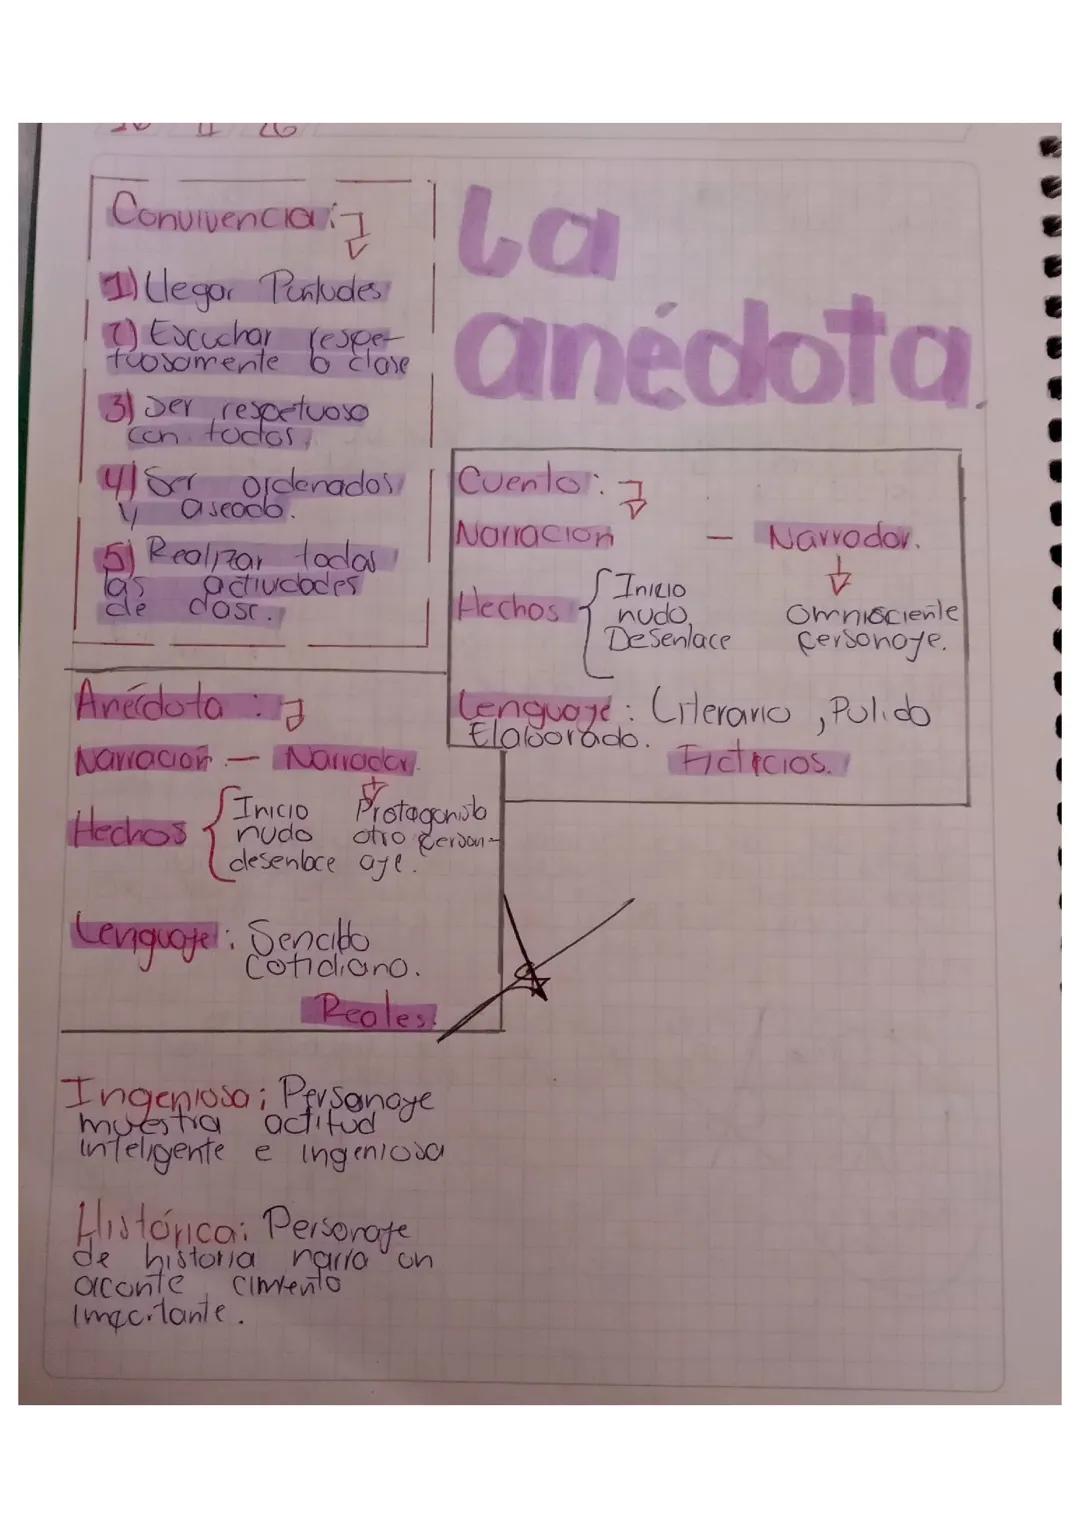 Convivencia:
1) Llegar Puntudes
2) Escuchar respe-
tuosamente la clase
3) Ser respetuoso
con todos.
4) Ser ordenados
y aseado.
5) Realizar todas
las actividades
de clase.
La
anédota.
Cuento:
Narracion - Narrador.
Hechos
Inicio
nudo
Desenlace
Omnisciente
Personaje.
Lenguaje: Literario, Pulido
Elaborado.
Ficticios.
Anécdota:
Narracion - Narrador.
Hechos
Inicio
nudo
desenlace
Protagonista
otro person-
aje.
Lenguaje: Sencillo
Cotidiano.
Reales.
Ingeniosa: Personaje
muestra actitud
inteligente e ingeniosa
Histórica: Personaje
de historia narra un
aconte cimiento
importante.